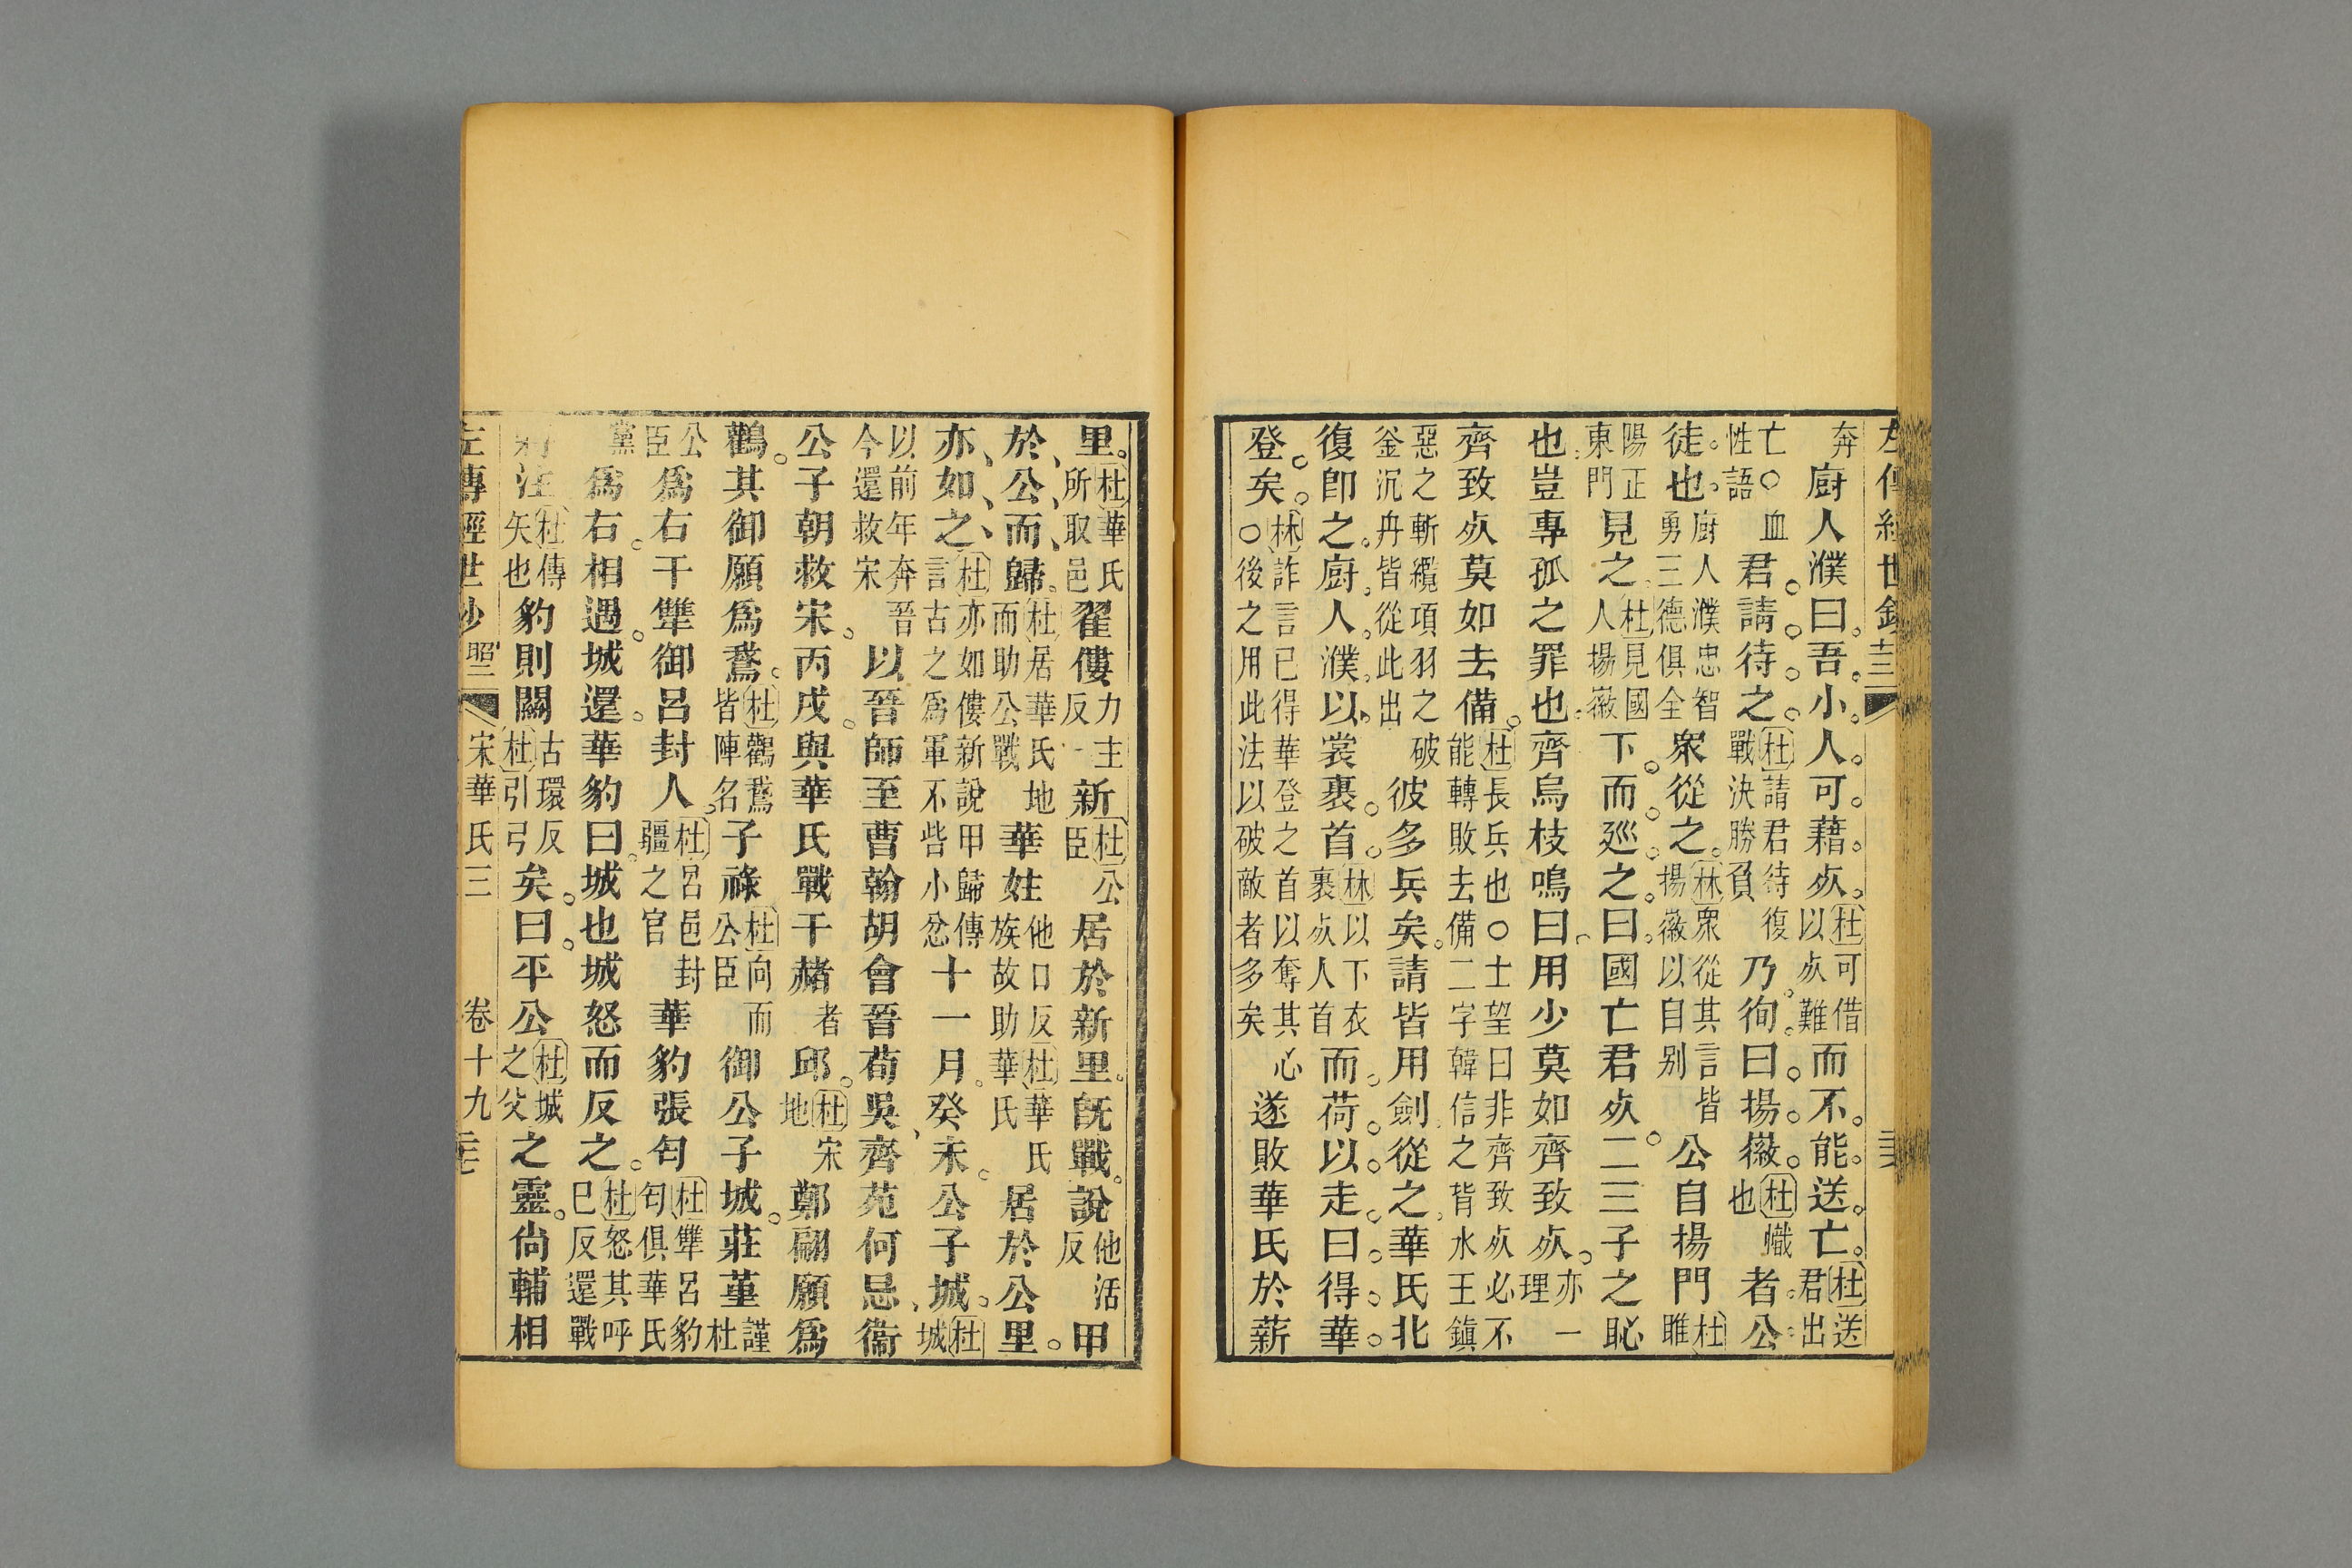 奔厨人濮曰。吾。小。人。可。藉。死。杜可借以死難而不。能。送。亡。杜送君出
亡○血性語君。請。待。之。杜請君待復戰決勝負乃徇。曰。揚。徽。杜幟也者公
徒。也。厨人濮忠智勇三德俱全衆從之。林衆從其言皆揚徽以自别公自揚門杜睢
陽正東門見之。杜見國人揚徽下。而。廵。之。曰。國亡君死。二三子之恥
也豈專孤之罪也。齊烏枝鳴曰。用少莫如齊致死。亦一理
齊致死莫如去備。杜長兵也○士望曰非齊致死必不能轉敗去備二字韓信之背水王鎮
惡之斬纜項羽之破釜沉舟皆從此出彼多兵矣。請皆用劍從之。華氏北
復即之。厨。人。濮。以。裳裹。首。林以下衣裹死人首而。荷。以。走。曰。得。華。
登。矣。林詐言已得華登之首以奪其心○後之用此法以破敵者多矣遂敗華氏於新
里。杜華氏所取邑翟僂力主反新杜公臣居於新里。既戰。說他活反甲
於、公、而、歸。杜居華氏地而助公戰華妵他口反杜華氏族故助華氏居於公里。
亦、如、之、杜亦如僂新說甲歸傳言古之爲軍不呰小忿十一月。癸未。公子城。杜城
以前年奔晉今還救宋以晉師至曹翰胡會晉荀吳、齊苑何忌、衞
公子朝救宋。丙戌。與華氏戰于赭者邱。杜宋地鄭翩願爲
鸛。其御願爲鵞。杜鸛鵞皆陣名子祿杜向公臣而御公子城。莊堇謹杜
公臣爲右干犨御呂封人。杜呂邑封疆之官華豹張匄杜犨呂豹匄俱華氏
黨爲右。相遇。城還。華豹曰。城也城怒而反之。杜怒其呼己反還戰
將注杜傳矢也豹則關古環反杜引弓矣。曰。平公杜城之父之靈。尙輔相
左傳經世鈔 昭二 宋華氏三 卷十九